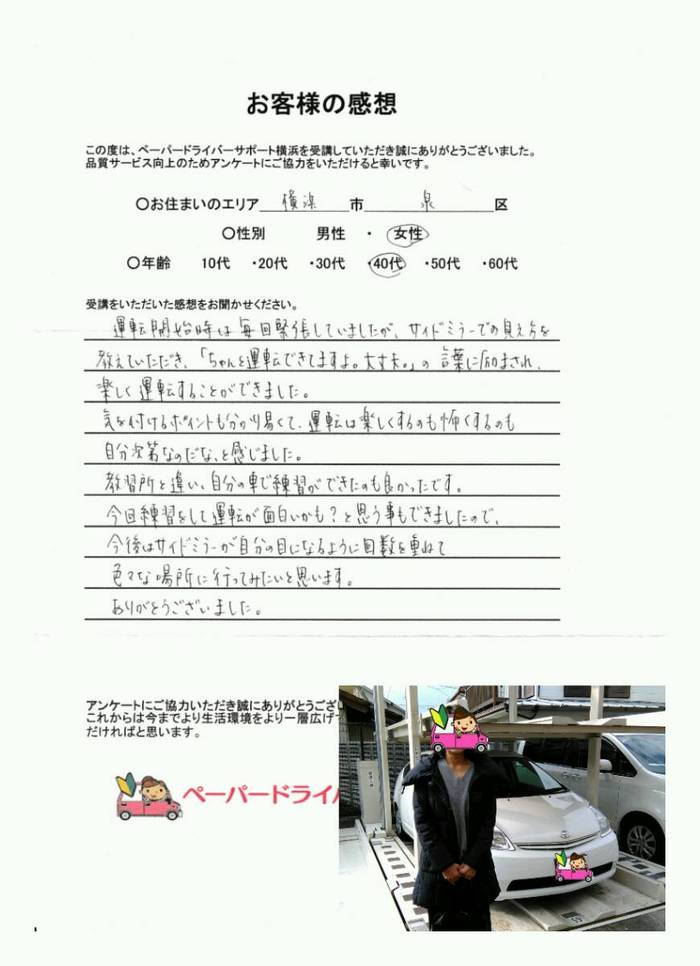 お客様の感想
この度は、ペーパードライバーサポート横浜を受講していただき誠にありがとうございました。
品質サービス向上のためアンケートにご協力をいただけると幸いです。
〇お住まいのエリア 横浜 市 泉 区
〇性別 男性 ・ 女性
〇年齢 10代 ・20代 ・30代 ・40代 ・50代 ・60代
受講をいただいた感想をお聞かせください。
運転開始時は毎回緊張していましたが、サイドミラーでの見え方を
教えていただき、「ちゃんと運転できてますよ。大丈夫。」の言葉に励まされ、
楽しく運転することができました。
気を付けるポイントも分かり易くて、運転は楽しくするのも怖くするのも
自分次第なのだな、と感じました。
教習所と違い、自分の車で練習ができたのも良かったです。
今回練習をして運転が面白いかも?と思う事もできましたので、
今後はサイドミラーが自分の目になるように回数を重ねて
色々な場所に行ってみたいと思います。
ありがとうございました。
アンケートにご協力いただき誠にありがとうござい
これからは今までより生活環境をより一層広げ
だければと思います。
ペーパードライ